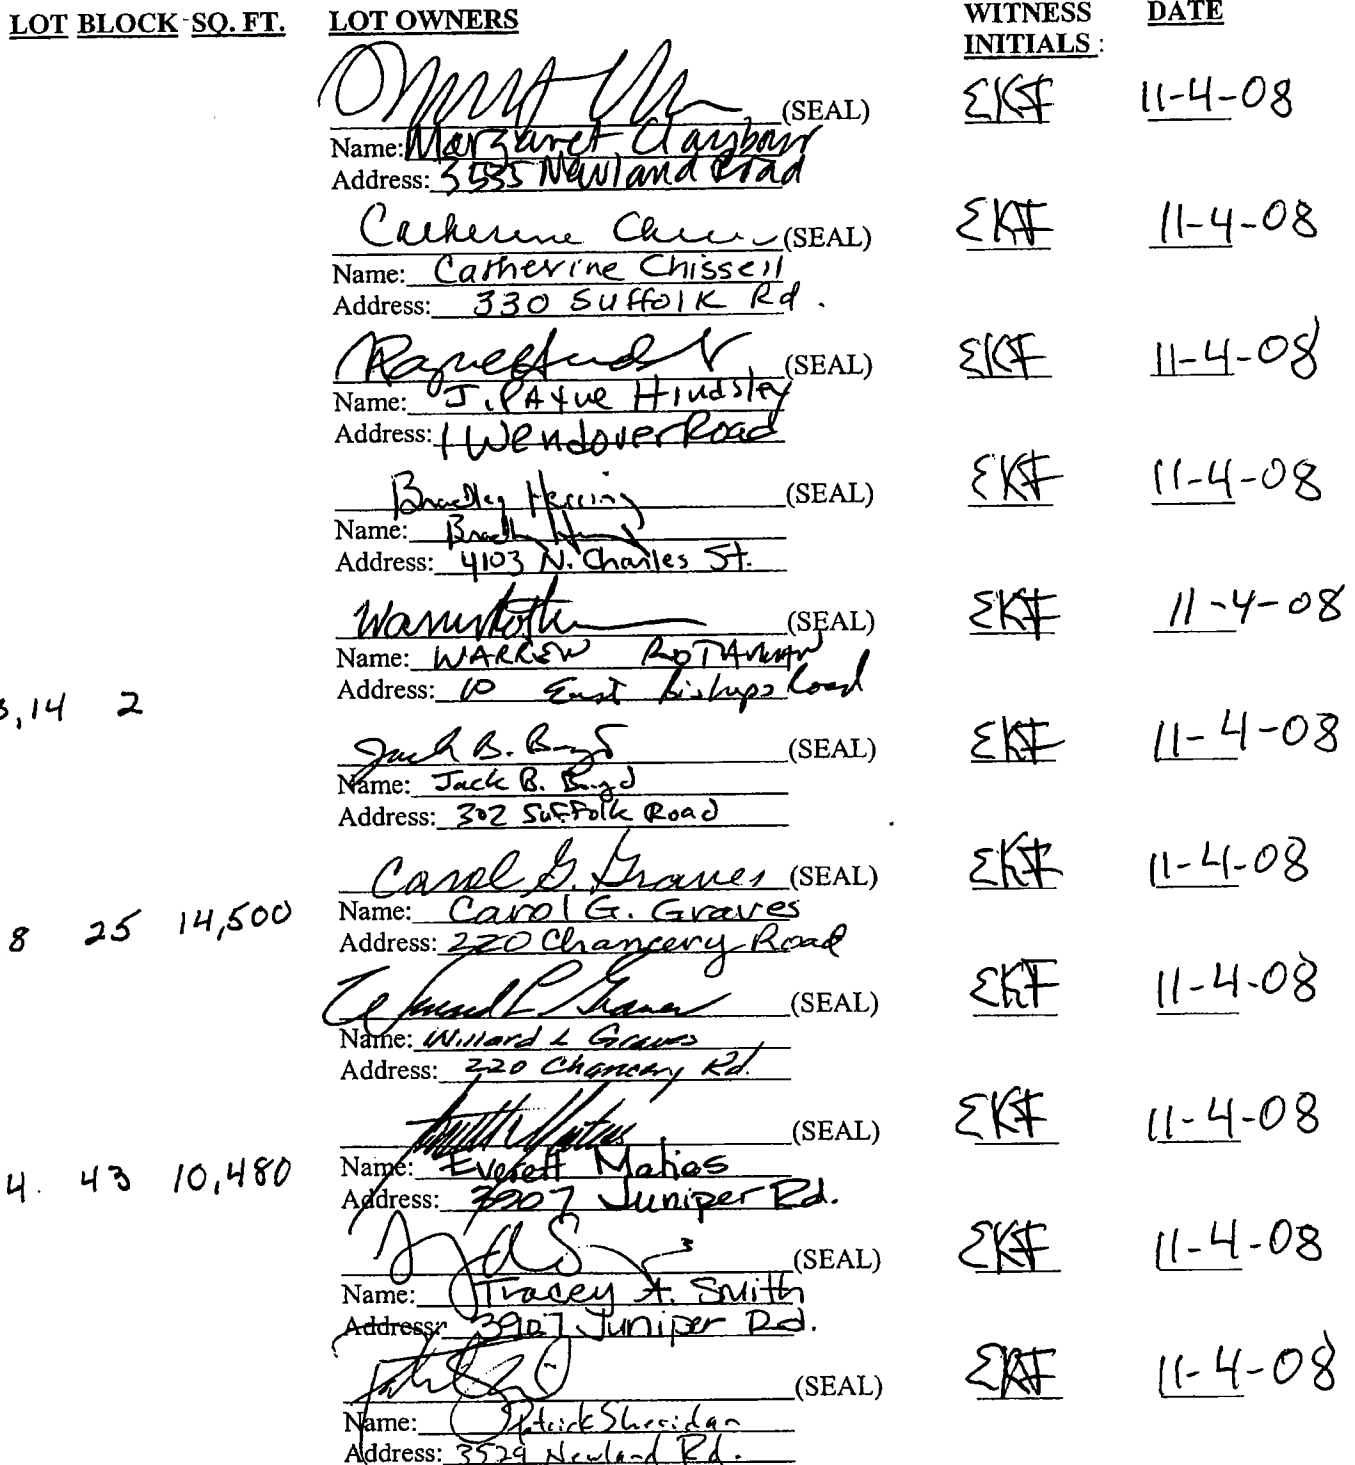 LOT BLOCK SQ. FT. LOT OWNERS WITNESS INITIALS : DATE
(SEAL) EKF 11-4-08
Name: Margaret Claybour
Address: 3535 Newland Road
Catherine (SEAL) EKF 11-4-08
Name: Catherine Chissell
Address: 330 Suffolk Rd.
(SEAL) EKF 11-4-08
Name: J. PAYNE HINDSLEY
Address: 1 Wendover Road
Bradley Herring (SEAL) EKF 11-4-08
Name: Bradley
Address: 4103 N. Charles St.
(SEAL) EKF 11-4-08
Name: WARREN ROTHMAN
Address: 10 East Bishops Road
,14 2
Jack B. Boyd (SEAL) EKF 11-4-08
Name: Jack B. Boyd
Address: 302 Suffolk Road
Carol G. Graves (SEAL) EKF 11-4-08
8 25 14,500 Name: Carol G. Graves
Address: 220 Chancery Road
Willard L Graves (SEAL) EKF 11-4-08
Name: Willard L Graves
Address: 220 Chancery Rd.
(SEAL) EKF 11-4-08
4. 43 10,480 Name: Everett Matias
Address: 3907 Juniper Rd.
(SEAL) EKF 11-4-08
Name: Tracey A. Smith
Address: 3907 Juniper Rd.
(SEAL) EKF 11-4-08
Name: Patrick Sheridan
Address: 3529 Newland Rd.